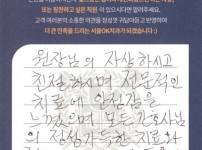 또는 칭찬하고 싶은 직원이 있으시다면 알려주세요.
고객 여러분의 소중한 의견을 정성껏 귀담아듣고 반영하여
더 큰 만족을 드리는 서울OK치과가 되겠습니다 :)
원장님의 자상하시고
친절하시며 전문적인
치료에 안정감을
느꼈으며 모든 간호사님
의 정성가득한 치료와